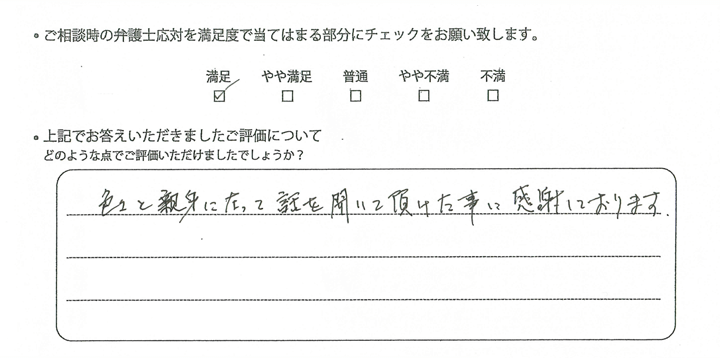 • ご相談時の弁護士応対を満足度で当てはまる部分にチェックをお願い致します。
満足 やや満足 普通 やや不満 不満
☑ □ □ □ □
• 上記でお答えいただきましたご評価について
どのような点でご評価いただけましたでしょうか？
色々と親身になって話を聞いて頂けた事に感謝しております.